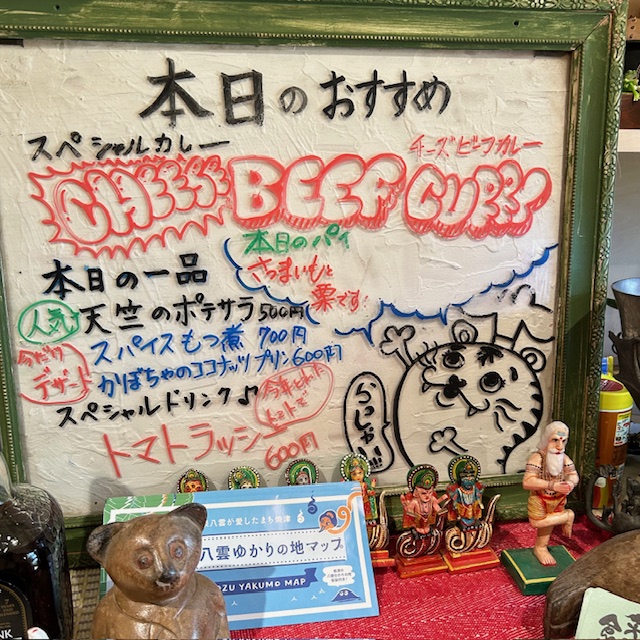 本日のおすすめ
スペシャルカレー
チーズビーフカレー
CHEESE BEEF CURRY
本日のパイ
さつまいもと
栗です!
本日の一品
人気
天竺のポテサラ 500円
スパイスもつ煮 700円
今だけ
デザート
かぼちゃのココナッツプリン 600円
スペシャルドリンク♪
今年とれた
トマトラッシー
600円
らっしゃい
八雲が愛したまち焼津
八雲ゆかりの地マップ
ZU YAKUMO MAP